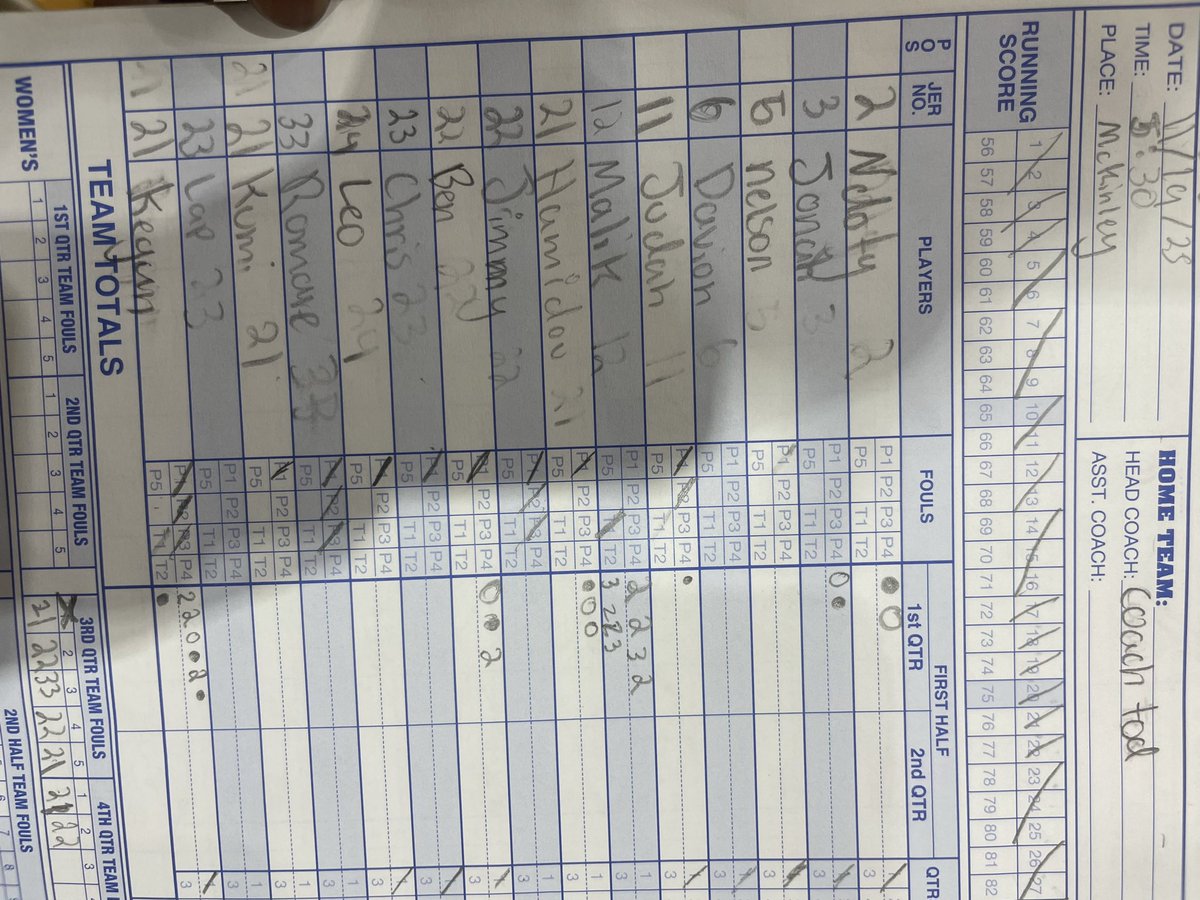 DATE: 11/19/25
TIME: 5:30
PLACE: McKinley
HOME TEAM:
HEAD COACH: Coach tod
ASST. COACH:
RUNNING SCORE
1 2 3 4 5 6 7 8 9 10 11 12 13 14 15 16 17 18 19 20 21 22 23 24 25 26 27
56 57 58 59 60 61 62 63 64 65 66 67 68 69 70 71 72 73 74 75 76 77 78 79 80 81 82
POS JER NO. PLAYERS FOULS FIRST HALF QTR
1st QTR 2nd QTR
2 Ndoty 2 P1 P2 P3 P4 P5 T1 T2
3 Jonah 3 P1 P2 P3 P4 P5 T1 T2
5 nelson 5 P1 P2 P3 P4 P5 T1 T2
6 Davion 6 P1 P2 P3 P4 P5 T1 T2
11 Judah 11 P1 P2 P3 P4 P5 T1 T2
12 Malik 12 P1 P2 P3 P4 P5 T1 T2 2 2 3 2 3 2 2 3
21 Hamidou 21 P1 P2 P3 P4 P5 T1 T2
22 Jimmy 22 P1 P2 P3 P4 P5 T1 T2
22 Ben 22 P1 P2 P3 P4 P5 T1 T2 2
23 Chris 23 P1 P2 P3 P4 P5 T1 T2
24 Leo 24 P1 P2 P3 P4 P5 T1 T2
33 Romare 33 P1 P2 P3 P4 P5 T1 T2
21 21 Kumi 21 P1 P2 P3 P4 P5 T1 T2
23 Lap 23 P1 P2 P3 P4 P5 T1 T2
21 Keyun P1 P2 P3 P4 P5 T1 T2 2 2 0 2
TEAM TOTALS
1ST QTR TEAM FOULS 2ND QTR TEAM FOULS 3RD QTR TEAM FOULS 4TH QTR TEAM
WOMEN'S 1 2 3 4 5 1 2 3 4 5 2 3 4 5 1 2 3
21 22 33 22 21 21 22
2ND HALF TEAM FOULS
6 7 8